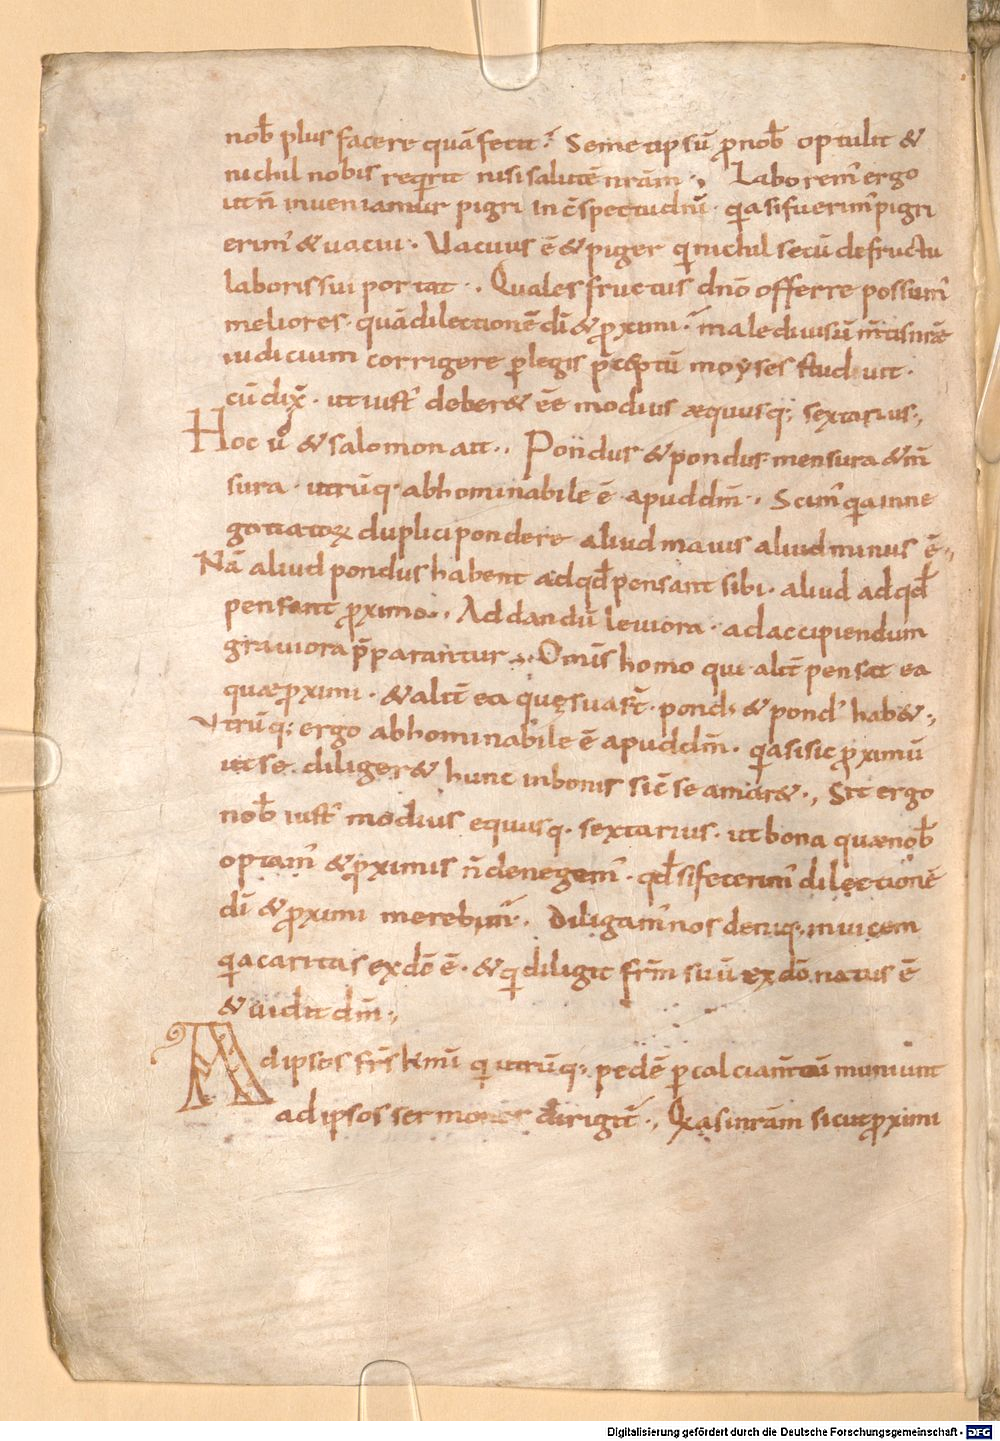 nob̄ plus facere quā fecit? Semetipsū ꝓnob̄ optulit &
nichil nobis reqͥrit nisi salutē nr̄am., Laborem᾽ ergo
ut n̄ inveniamur pigri in c̄spectu dn̄i. qͥa si fuerim᾽ pigri
erim᾽ & vacui. Vacuus ē & piger qͥ nichil secū de fructu
laboris sui portat., Quales fructus dn̄o offerre possum᾽
meliores. quā dilectionē dī & ꝓximi. male divisū
iudicium corrigere ꝑ legis p̄ceptū moyses studuit.
cū dix̄. ut iust᾽ deber& ēe modius æquusq; sextarius.,
Hoc ŭ & salomon ait., Pondus & pondus. mensura & m̄
sura. utrūq. abhominabile ē apud dm̄., Scim᾽ qͥa in ne
gotiatoꝝ duplici pondere aliud maius aliud minus ē.,
Nā aliud pondus habent ad qd̄ pensant sibi. aliud ad qd̄
pensant ꝓximo., Ad dandū leviora. ad accipiendum
graviora p̄parantur., Omīs homo qui alit̄ pensat ea
quæ ꝓximi. & alit̄ ea quę sua st̄. pond᾽ & pond᾽ hab&.,
Vtrūq; ergo abhominabile ē apud dm̄. qͥa si sic ꝓximū
ut se diliger& hunc in bonis sic̄ se amar&., Sit ergo
nob̄ iust᾽ modius equusq. sextarius. ut bona quæ nob̄
optam᾽ & ꝓximis n̄ denegem᾽. qd̄ si fecerim᾽ dilęctionē
dī & ꝓximi merebim̄. Diligam᾽ nos deniq; invicem
qͥa caritas ex dō ē. & qͥ diligit fr̄m suū ex dō natus ē
& vidit dm̄.,
Ad ipsos fr̄s km̄i qͥ utrūq; pedē ꝑ calciam̄tū muniunt
ad ipsos sermones dirigit̄., Qͥa si nr̄am sicut ꝓximi
Digitalisierung gefördert durch die Deutsche Forschungsgemeinschaft - DFG